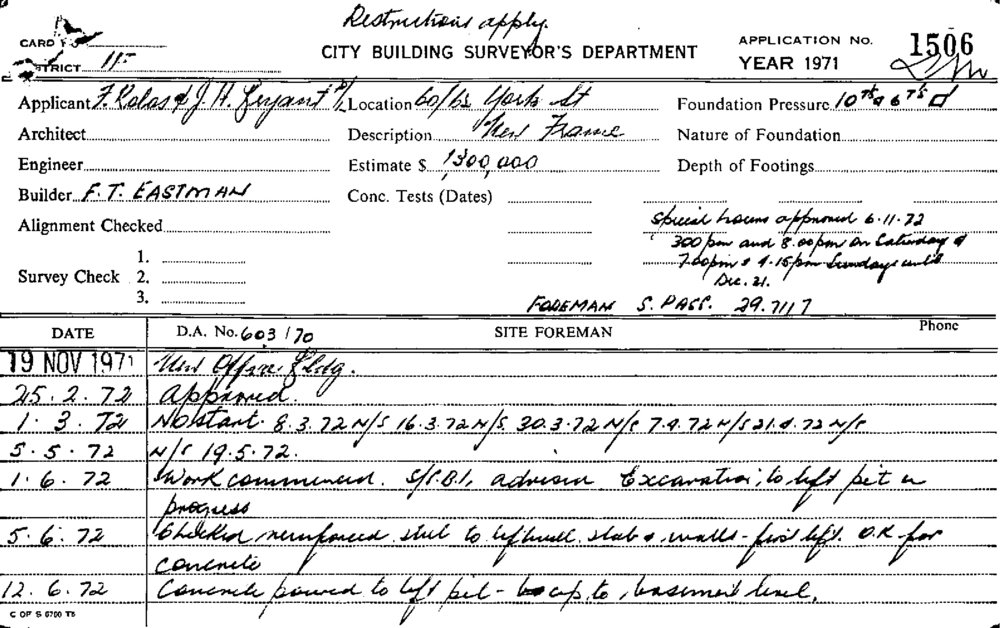 Restrictions apply.
CARD
DISTRICT 11
CITY BUILDING SURVEYOR'S DEPARTMENT
APPLICATION No. 1506
YEAR 1971
Applicant F. Kolos & J. H. Bryant P/L Location 60/62 York St Foundation Pressure
Architect Description New Frame Nature of Foundation
Engineer Estimate $ 1,300,000 Depth of Footings
Builder F. T. EASTMAN Conc. Tests (Dates)
Alignment Checked
Special hours approved 6.11.72
300pm and 8.00pm on Saturday &
7.00pm & 4.15pm Sundays until
Dec. 21.
Survey Check 1.
2.
3.
FOREMAN S. PASS. 29.7117
DATE D.A. No. 603/70 SITE FOREMAN Phone
19 NOV 1971 New Office Bldg.
25.2.72 Approved.
1.3.72 No start. 8.3.72 N/S 16.3.72 N/S. 30.3.72 N/S 7.4.72 N/S 21.4.72 N/S
5.5.72 N/S 19.5.72.
1.6.72 Work commenced. advised Excavation to lift pit in
progress
5.6.72 Checked reinforced steel to slab & walls - first lift. O.K. for
concrete
12.6.72 Concrete poured to lift pit - up to basement level.
C OF S 6700 TS